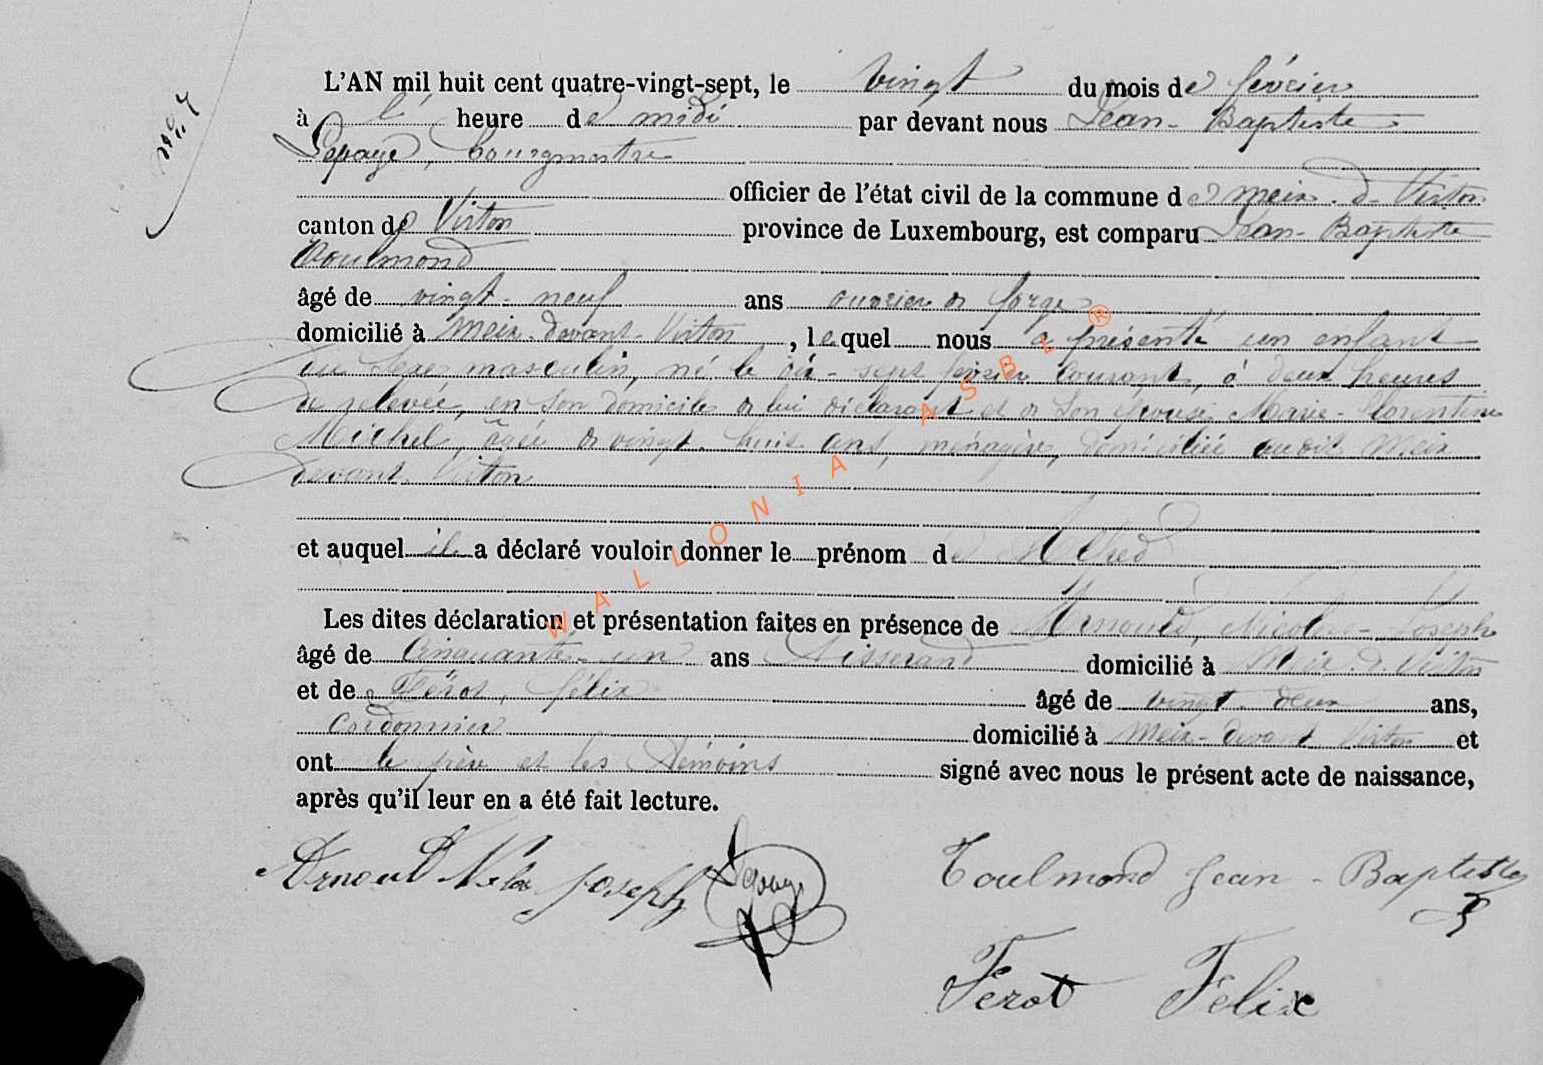 L'AN mil huit cent quatre-vingt-sept, le vingt du mois de février
à l' heure de midi par devant nous Jean-Baptiste
Lepage, bourgmestre
officier de l'état civil de la commune de Meix-d-Virton
canton de Virton province de Luxembourg, est comparu Jean-Baptiste
Toulmond
âgé de vingt-neuf ans ouvrier de forge
domicilié à Meix-devant-Virton, lequel nous a présenté un enfant
du sexe masculin, né le dix-sept février courant, à deux heures
de relevée, en son domicile de lui déclarant et de son épouse Marie-Florentine
Michel, âgée de vingt-huit ans, ménagère, domiciliée audit Meix
devant-Virton
et auquel il a déclaré vouloir donner le prénom de Alfred
Les dites déclaration et présentation faites en présence de Arnould, Nicolas-Joseph
âgé de cinquante-un ans Tisserand domicilié à Meix-d-Virton
et de Férot, Félix âgé de vingt-deux ans,
cordonnier domicilié à Meix-devant Virton et
ont le père et les témoins signé avec nous le présent acte de naissance,
après qu'il leur en a été fait lecture.
Arnould Nicolas Joseph Lepage Toulmond Jean-Baptiste
Ferot Felix
WALLONIA ASBL ®